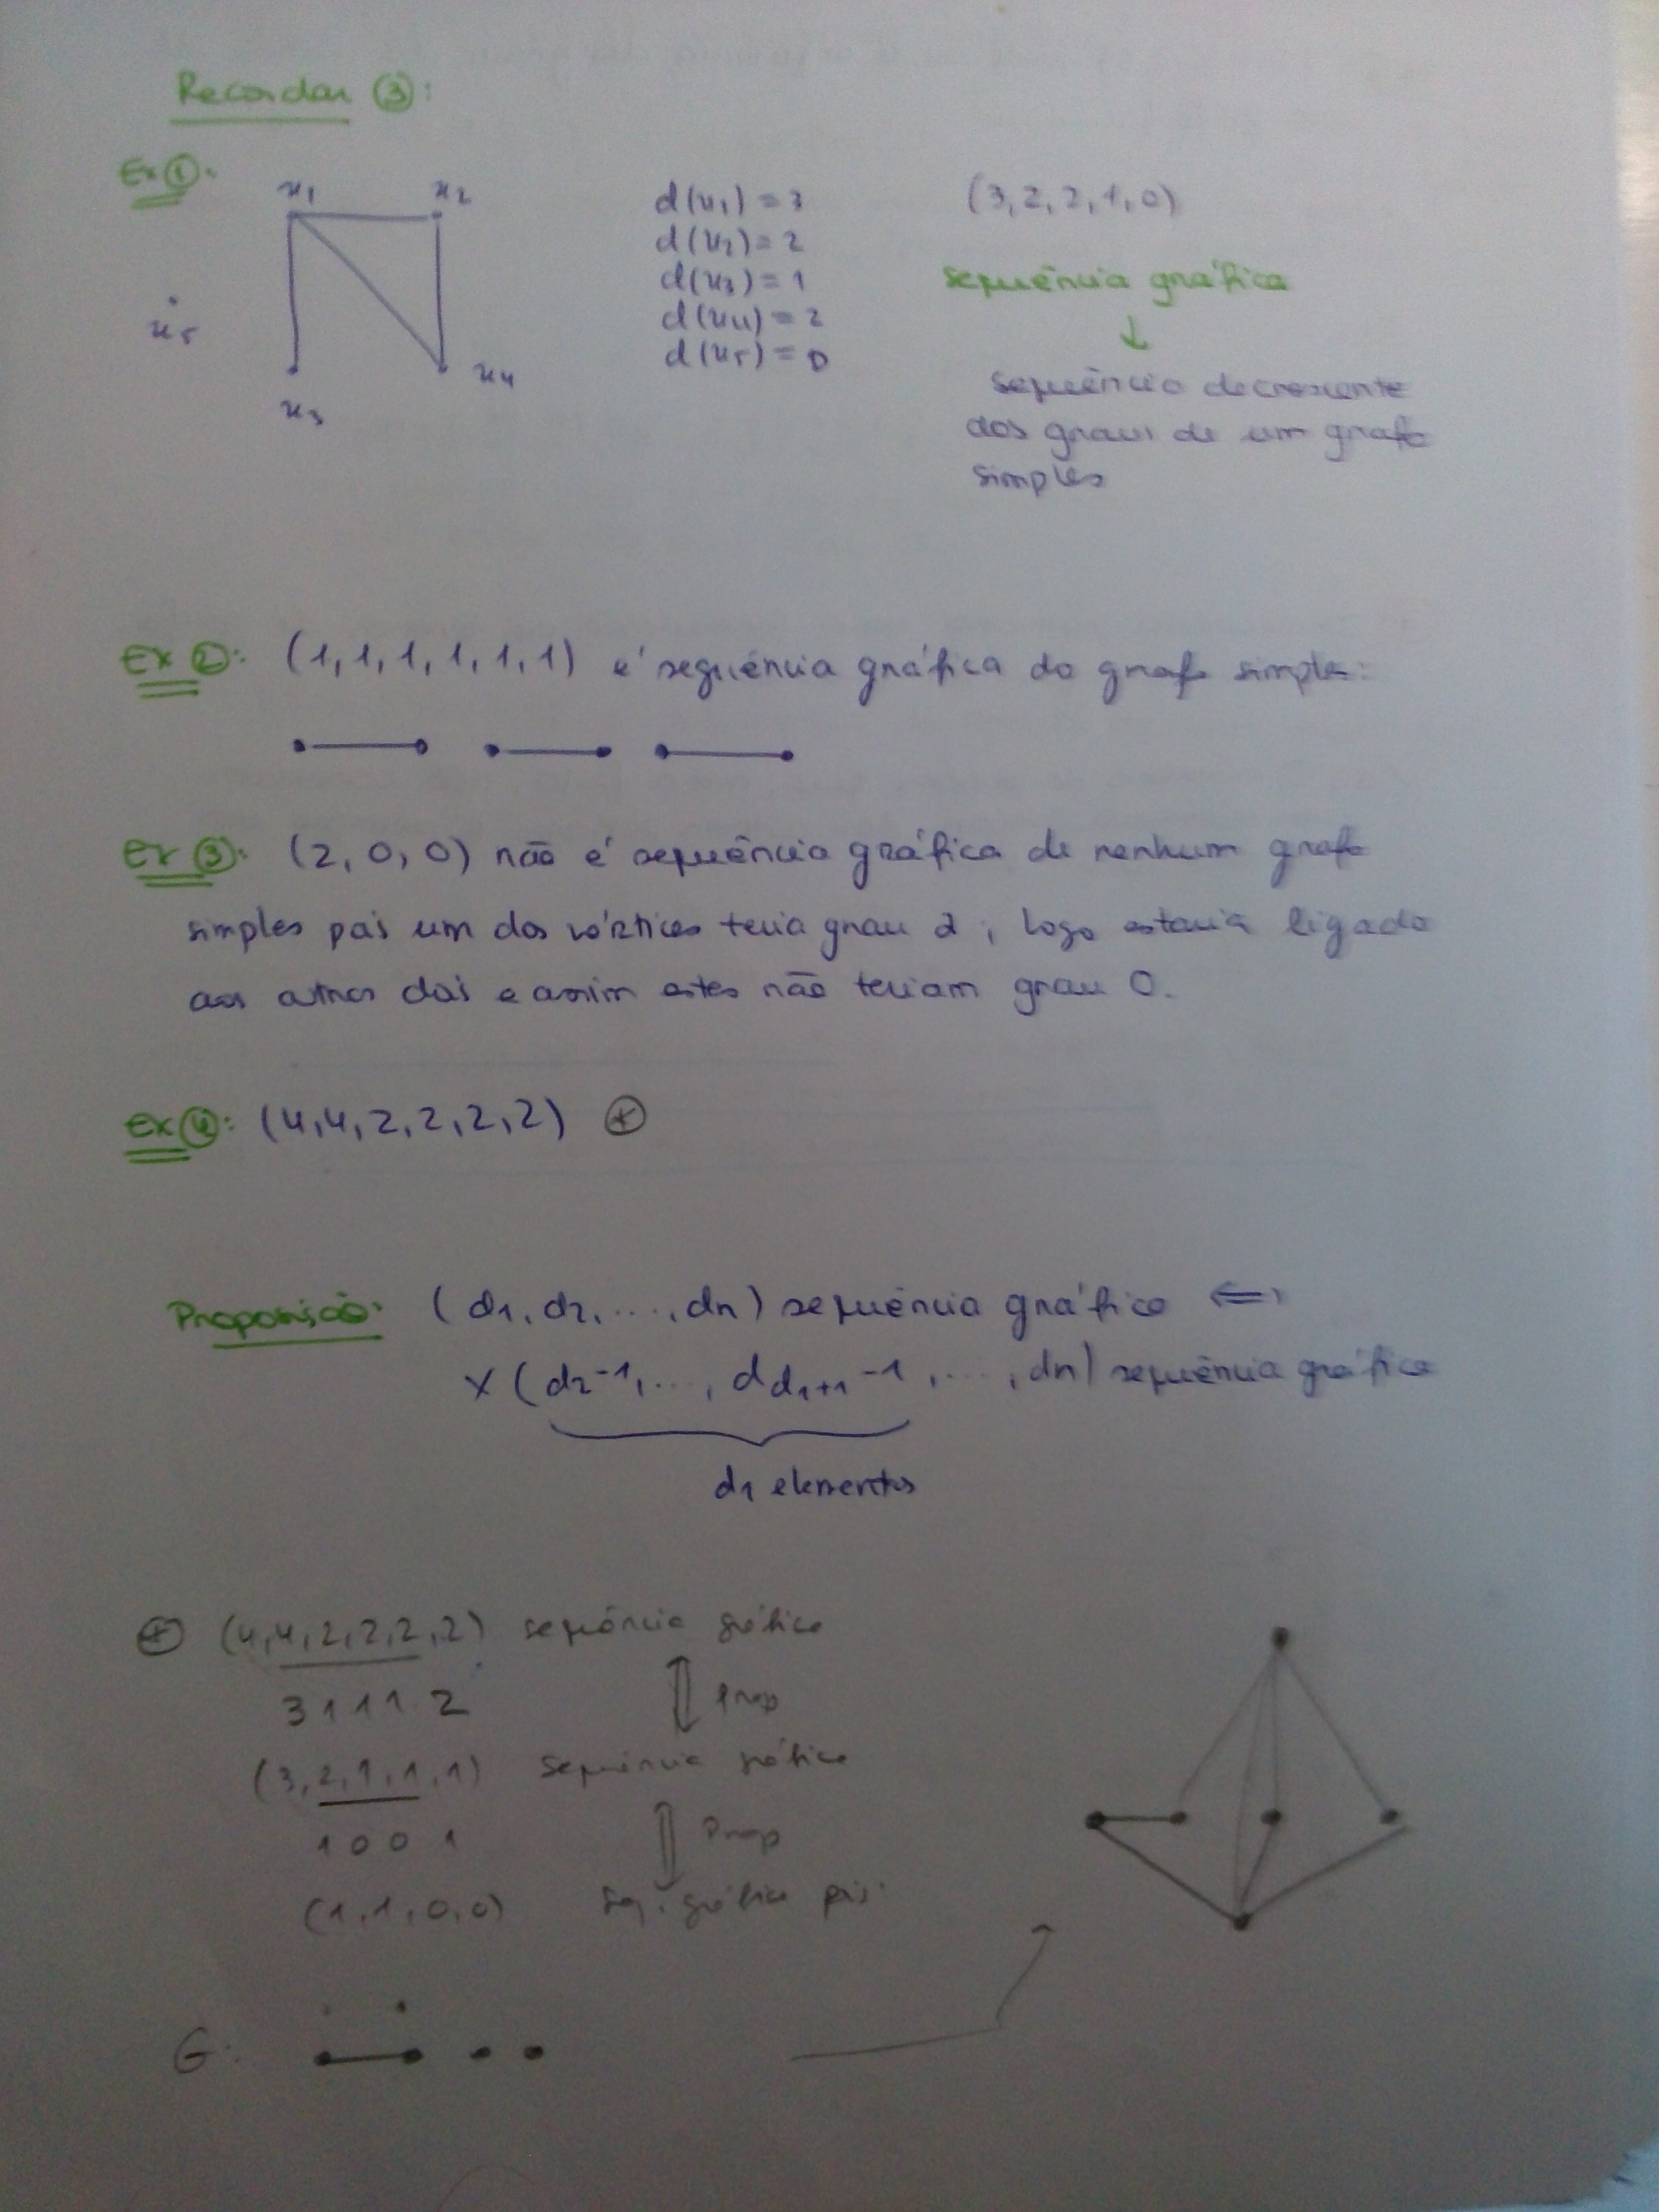 Recordar ③:
Ex①:
x1 x2
x5
x3
x4
d(x1) = 3
d(x2) = 2
d(x3) = 1
d(x4) = 2
d(x5) = 0
(3, 2, 2, 1, 0)
sequência gráfica
↓
sequência decrescente
dos graus de um grafo
simples
Ex②: (1, 1, 1, 1, 1, 1) é sequência gráfica do grafo simples:
Ex③: (2, 0, 0) não é sequência gráfica de nenhum grafo
simples pois um dos vértices teria grau 2, logo estaria ligado
aos outros dois e assim estes não teriam grau 0.
Ex④: (4, 4, 2, 2, 2, 2) ⊛
Proposição: (d1, d2, ..., dn) sequência gráfica ⟺
x (d2-1, ..., dd1+1 -1, ..., dn) sequência gráfica
d1 elementos
⊛ (4, 4, 2, 2, 2, 2) sequência gráfica
3 1 1 1 2 ⇕ Prop
(3, 2, 1, 1, 1) sequência gráfica
1 0 0 1 ⇕ Prop
(1, 1, 0, 0) seq. gráfica pois:
G: